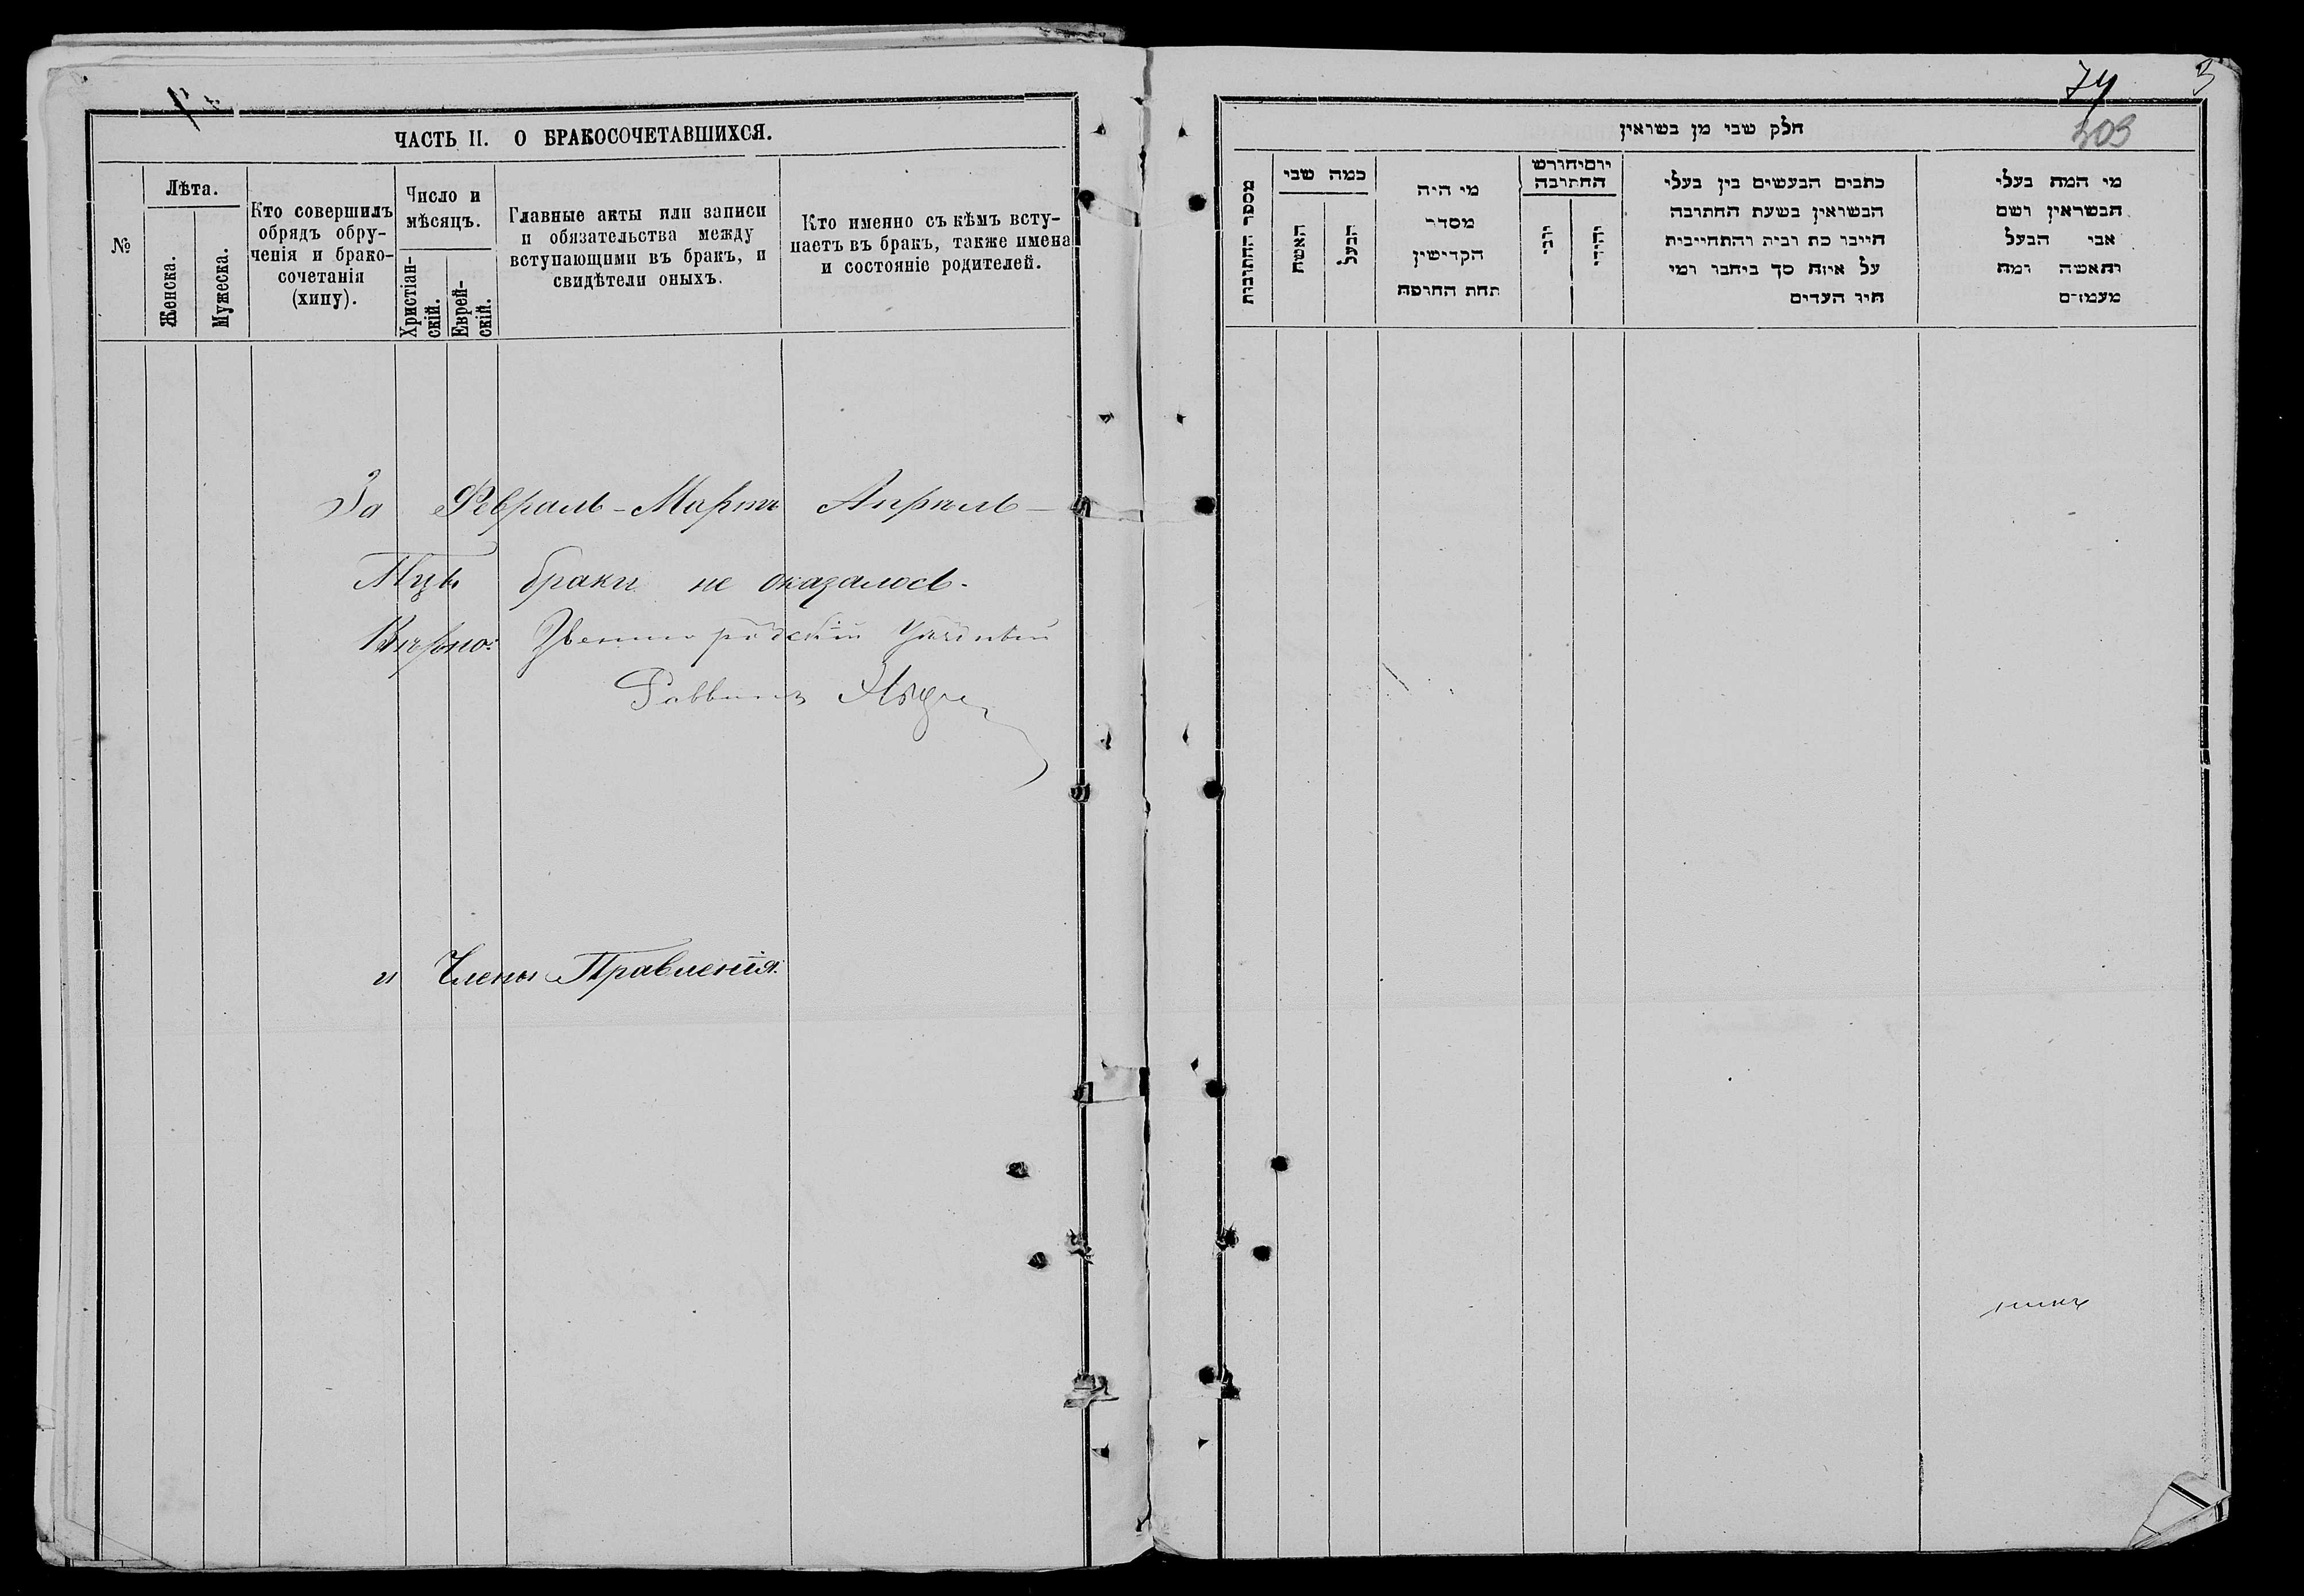 ЧАСТЬ II. О БРАКОСОЧЕТАВШИХСЯ.
№
Лѣта.
Женска.
Мужеска.
Кто совершилъ
обрядъ обру-
ченія и брако-
сочетанія
(хипу).
Число и
мѣсяцъ.
Христіан-
скій.
Еврей-
скій.
Главные акты или записи
и обязательства между
вступающими въ бракъ, и
свидѣтели оныхъ.
Кто именно съ кѣмъ всту-
паетъ въ бракъ, также имена
и состояніе родителей.
За Февраль - Мартъ Апрѣль -
Мцы браки не оказалось.
Вѣрно: Звенигородскій
Раввинъ
и Члены Правленія:
74
3
303
חלק שני מן נשואין
מספר החתונות
כמה שני
האשה
הבעל
מי היה
מסדר
הקדישין
תחת החופה
יום וחודש
החתונה
יוני
יהודי
כתבים הנעשים בין בעלי
הנשואין בשעת החתונה
היינו כת וביה והתחייבות
על איזה סך ביחבו ומי
היו העדים
מי המה בעלי
הנשואין ושם
אבי הבעל
והאשה ומה
מעמדם